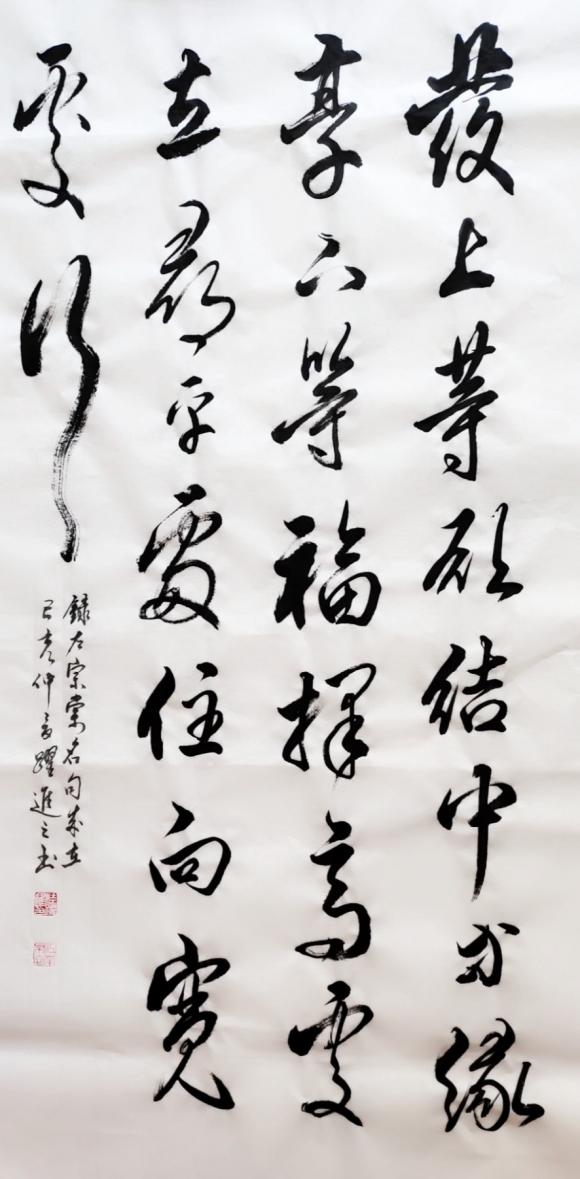 發上等願結中等緣
享下等福擇高處
立尋平處住向寬
處行
錄左宗棠名句歲在
己亥仲夏躍進之書